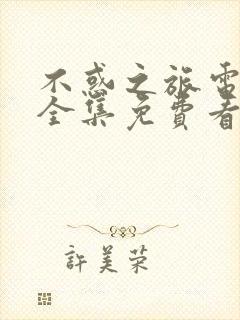 不惑之旅電
全集免費看
許美荣